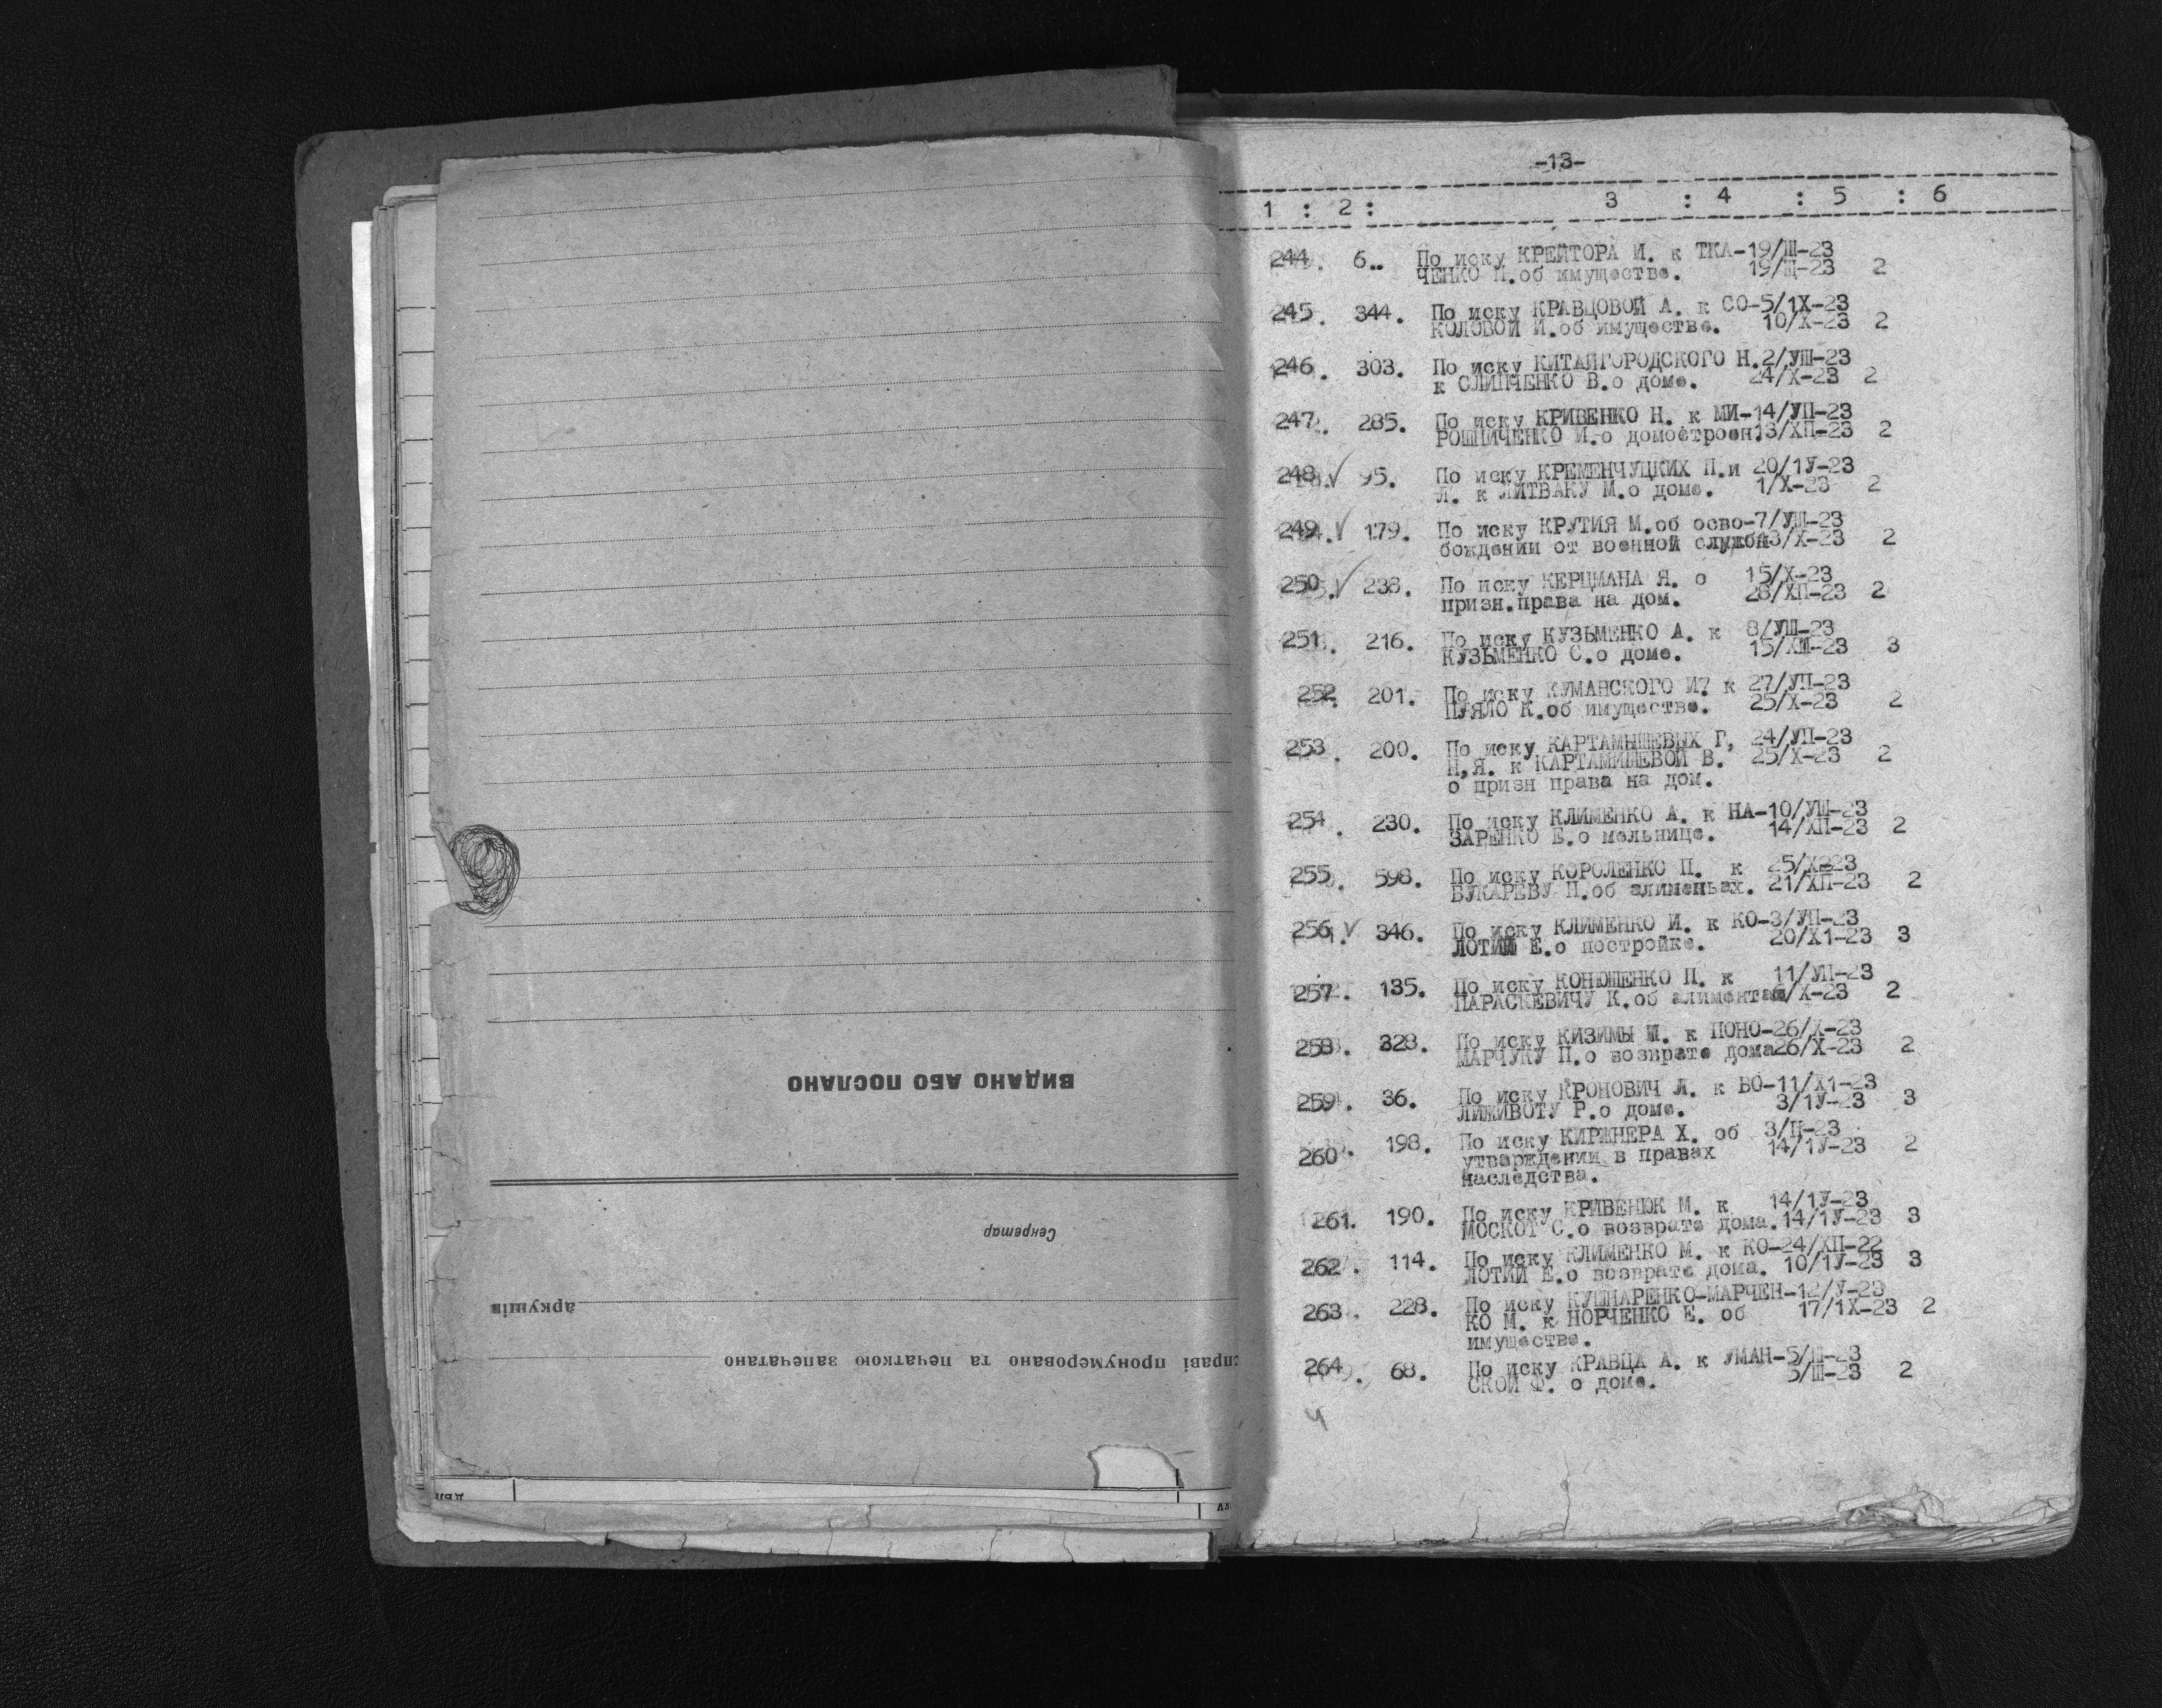 -13-
1 : 2 : 3 : 4 : 5 : 6
244. 6.. По иску КРЕЙТОРА И. к ТКА-19/Ш-23
ЧЕНКО П.об имуществе. 19/Ш-23 2
245. 344. По иску КРАВЦОВОЙ А. к СО-5/1Х-23
КОЛОВОЙ И.об имуществе. 10/Х-23 2
246. 303. По иску КИТАЙГОРОДСКОГО Н.2/УШ-23
к СЛИПЧЕНКО В.о доме. 24/Х-23 2
247. 285. По иску КРИВЕНКО Н. к МИ-14/УП-23
РОШНИЧЕНКО И.о домостроен.13/ХП-23 2
248.√ 95. По иску КРЕМЕНЧУЦКИХ П.и 20/1У-23
Л. к ЛИТВАКУ М.о доме. 1/Х-23 2
249.√ 179. По иску КРУТИЯ М.об осво-7/УШ-23
бождении от военной службы3/Х-23 2
250.√ 238. По иску КЕРЦМАНА Я. о 15/Х-23
призн.права на дом. 28/ХП-23 2
251. 216. По иску КУЗЬМЕНКО А. к 8/УШ-23
КУЗЬМЕНКО С.о доме. 15/ХШ-23 3
252. 201. По иску КУМАНСКОГО И? к 27/УП-23
ПУЯЛО К.об имуществе. 25/Х-23 2
253. 200. По иску КАРТАМЫШЕВЫХ Г, 24/УП-23
П,Я. к КАРТАМИШЕВОЙ В. 25/Х-23 2
о призн права на дом.
254. 230. По иску КЛИМЕНКО А. к НА-10/УШ-23
ЗАРЕНКО Е.о мельнице. 14/ХП-23 2
255. 598. По иску КОРОЛЕНКО П. к 25/Х-23
БУКАРЕВУ П.об алименьах. 21/ХП-23 2
256.√ 346. По иску КЛИМЕНКО И. к КО-3/УП-23
ЛОТИЙ Е.о постройке. 20/Х1-23 3
257. 135. По иску КОНЮШЕНКО П. к 11/УП-23
ПАРАСКЕВИЧУ К.об алиментах /Х-23 2
258. 328. По иску КИЗИМЫ М. к ПОНО-26/Х-23
МАРЧУКУ П.о возврате дома26/Х-23 2
259. 36. По иску КРОНОВИЧ Л. к ВО-11/Х1-23
ЛИЖИВОТУ Р.о доме. 3/1У-23 3
260. 198. По иску КИРЖНЕРА Х. об 3/П-23
утверждении в правах 14/1У-23 2
наследства.
261. 190. По иску КРИВЕНЮК М. к 14/1У-23
МОСКОТ С.о возврате дома.14/1У-23 3
262. 114. По иску КЛИМЕНКО М. к КО-24/ХП-22
ЛОТИЙ Е.о возврате дома. 10/1У-23 3
263. 228. По иску КУШНАРЕНКО-МАРЧЕН-12/У-23
КО М. к НОРЧЕНКО Е. об 17/1Х-23 2
имуществе.
264. 68. По иску КРАВЦА А. к УМАН-5/Ш-23
СКОЙ Ф. о доме. 5/Ш-23 2
справі пронумеровано та печаткою запечатано
аркушів
Секретар
ВИДАНО АБО ПОСЛАНО